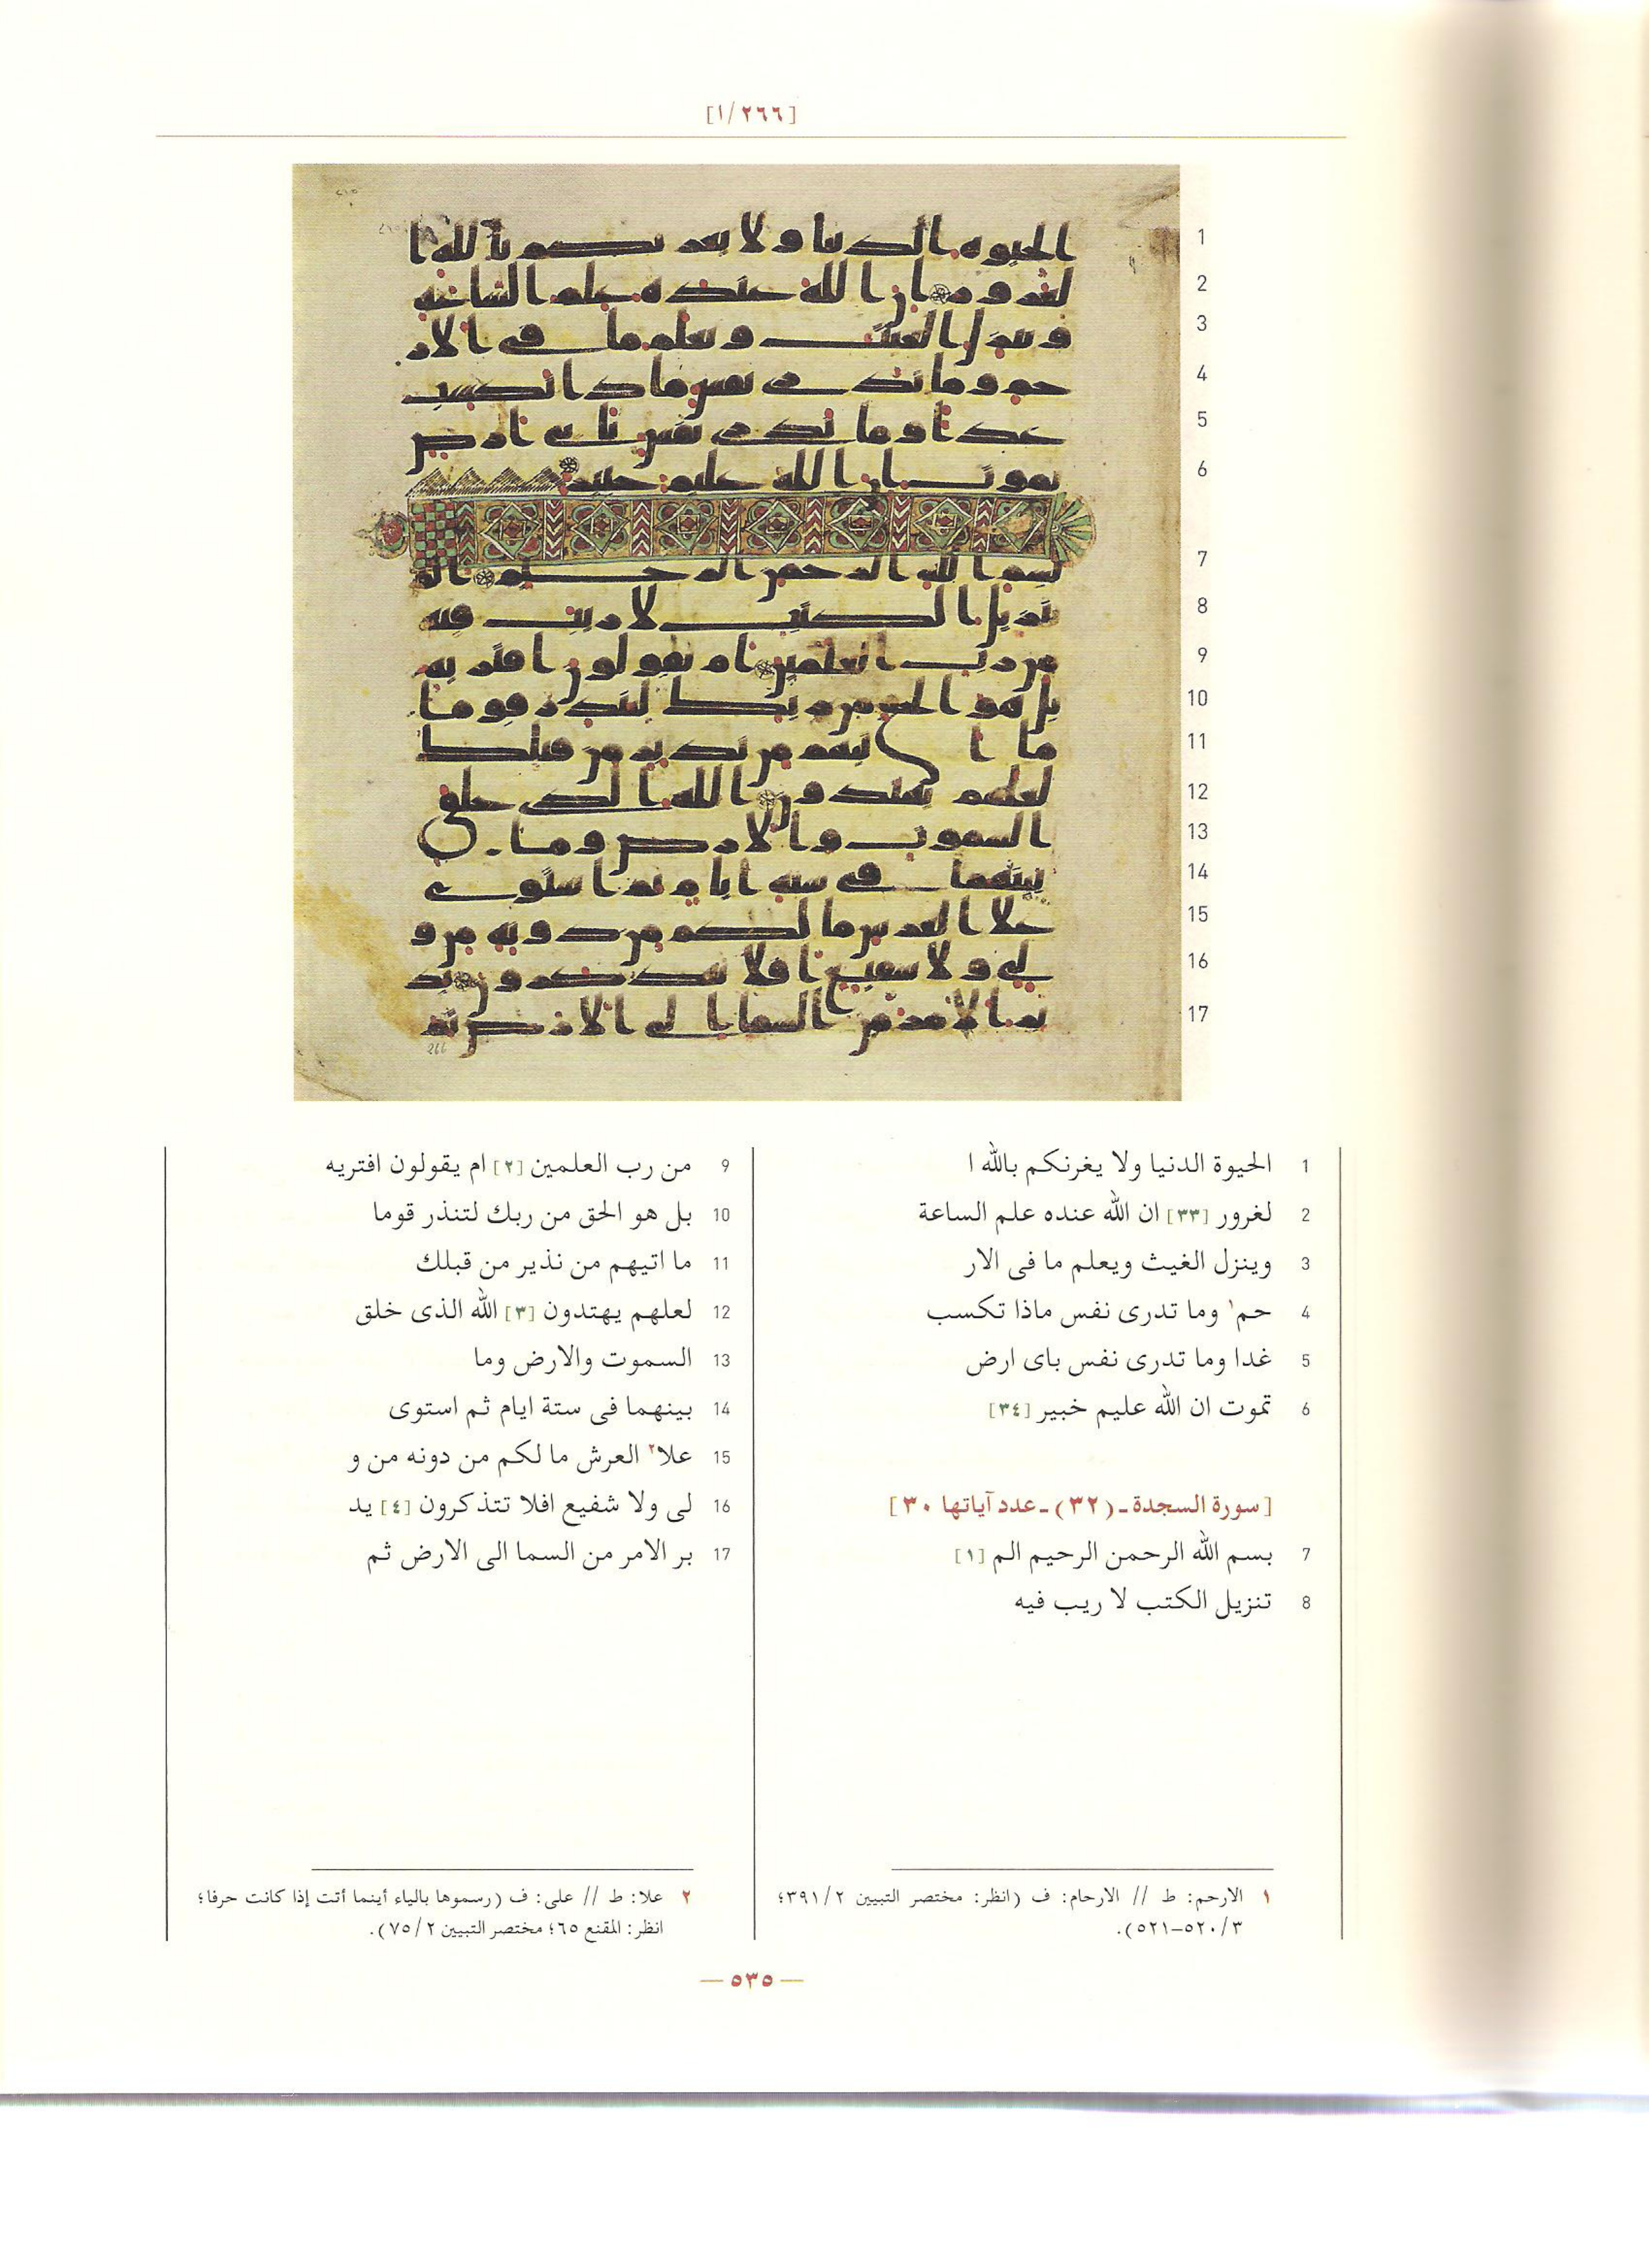 [١/٢٦٦]
1
2
3
4
5
6
7
8
9
10
11
12
13
14
15
16
17
1 الحيوة الدنيا ولا يغرنكم بالله ا
2 لغرور [٣٣] ان الله عنده علم الساعة
3 وينزل الغيث ويعلم ما فى الار
4 حم١ وما تدرى نفس ماذا تكسب
5 غدا وما تدرى نفس باى ارض
6 تموت ان الله عليم خبير [٣٤]
[سورة السجدة ـ (٣٢) ـ عدد آياتها ٣٠]
7 بسم الله الرحمن الرحيم الم [١]
8 تنزيل الكتب لا ريب فيه
9 من رب العلمين [٢] ام يقولون افتريه
10 بل هو الحق من ربك لتنذر قوما
11 ما اتيهم من نذير من قبلك
12 لعلهم يهتدون [٣] الله الذى خلق
13 السموت والارض وما
14 بينهما فى ستة ايام ثم استوى
15 علا٢ العرش ما لكم من دونه من و
16 لى ولا شفيع افلا تتذكرون [٤] يد
17 بر الامر من السما الى الارض ثم
١ الارحم: ط // الارحام: ف (انظر: مختصر التبيين ٣٩١/٢؛
٥٢٠/٣–٥٢١).
٢ علا: ط // على: ف (رسموها بالياء أينما أتت إذا كانت حرفا؛
انظر: المقنع ٦٥؛ مختصر التبيين ٧٥/٢).
— ٥٣٥ —